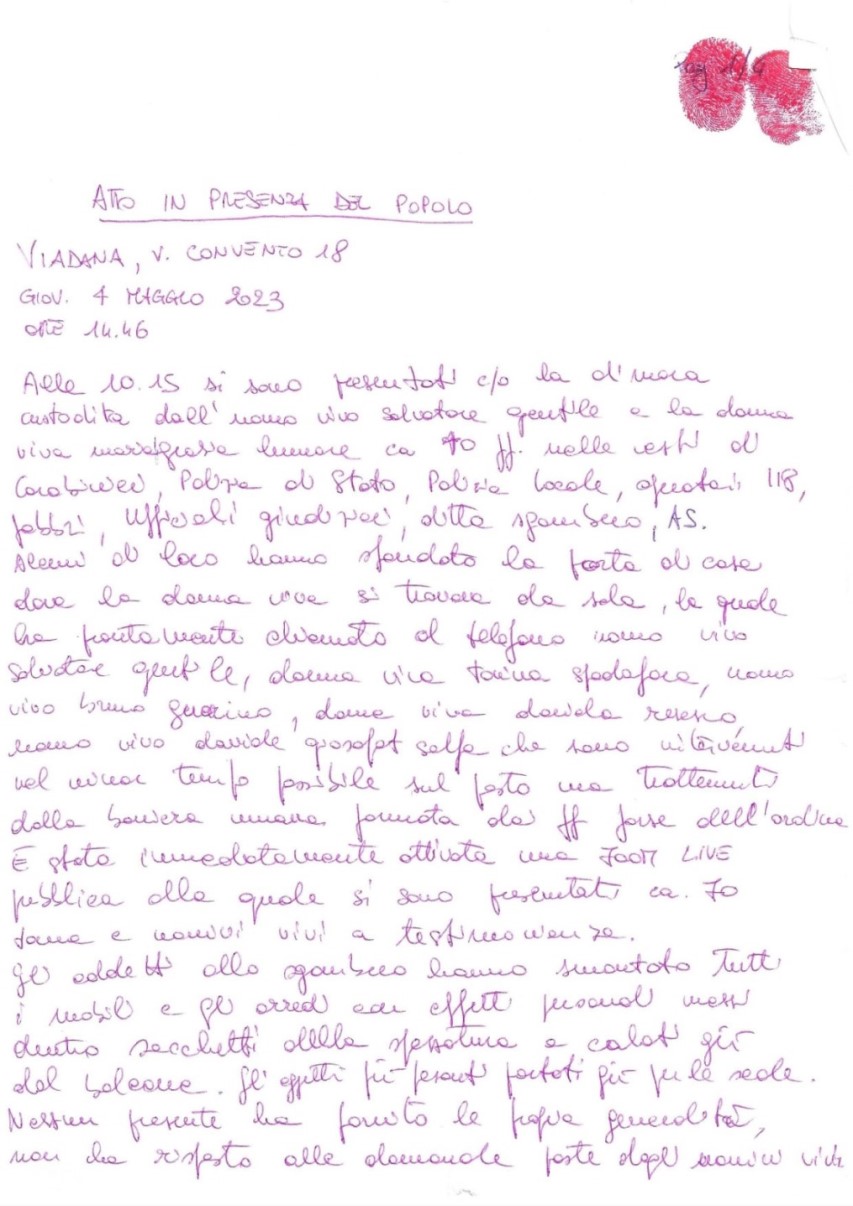 pag 1/4
ATTO IN PRESENZA DEL POPOLO
VIADANA, V. CONVENTO 18
GIOV. 4 MAGGIO 2023
ORE 14.46
Alle 10.15 si sono presentati c/o la dimora
custodita dall'uomo vivo salvatore gentile e la donna
viva mariagrazia ca 40 ff. nelle vesti di
Carabinieri, Polizia di Stato, Polizia Locale, operatori 118,
fabbri, Ufficiali giudiziari, ditta sgombero, AS.
Alcuni di loro hanno sfondato la porta di casa
dove la donna viva si trovava da sola, la quale
ha prontamente chiamato al telefono uomo vivo
salvatore gentile, donna viva tonina spadafora, uomo
vivo bruno guerino, donna viva daniela
uomo vivo davide che sono intervenuti
nel minor tempo possibile sul posto ma trattenuti
dalla barriera umana formata dai ff forze dell'ordine
È stata immediatamente attivata una ZOOM LIVE
pubblica alla quale si sono presentati ca. 70
donne e uomini vivi a testimonianza.
Gli addetti allo sgombero hanno smontato tutti
i mobili e gli arredi con effetti personali messi
dentro sacchetti della spazzatura e calati giù
dal balcone. Gli oggetti più pesanti portati giù per le scale.
Nessun presente ha fornito le proprie generalità,
non ha risposto alle domande poste dagli uomini vivi